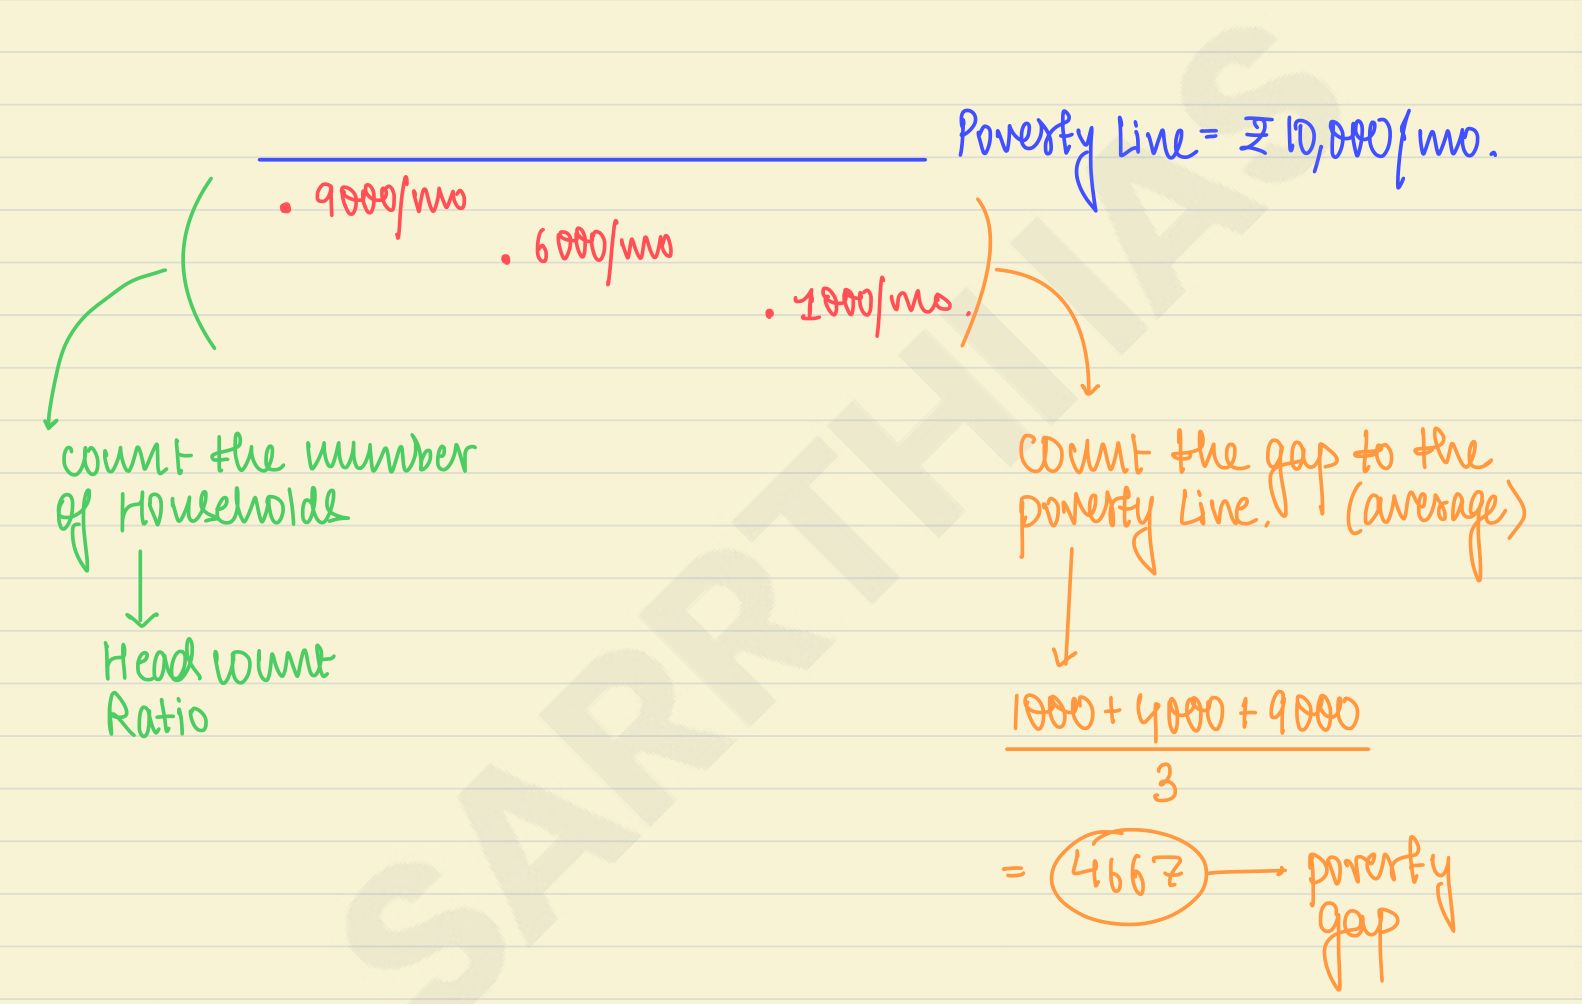 Poverty Line = ₹ 10,000/mo.
. 9000/mo
. 6000/mo
. 1000/mo.
count the number
of Households
Head count
Ratio
count the gap to the
poverty Line. (average)
1000 + 4000 + 9000
3
= 4667 → poverty
gap
SARRTHI IAS